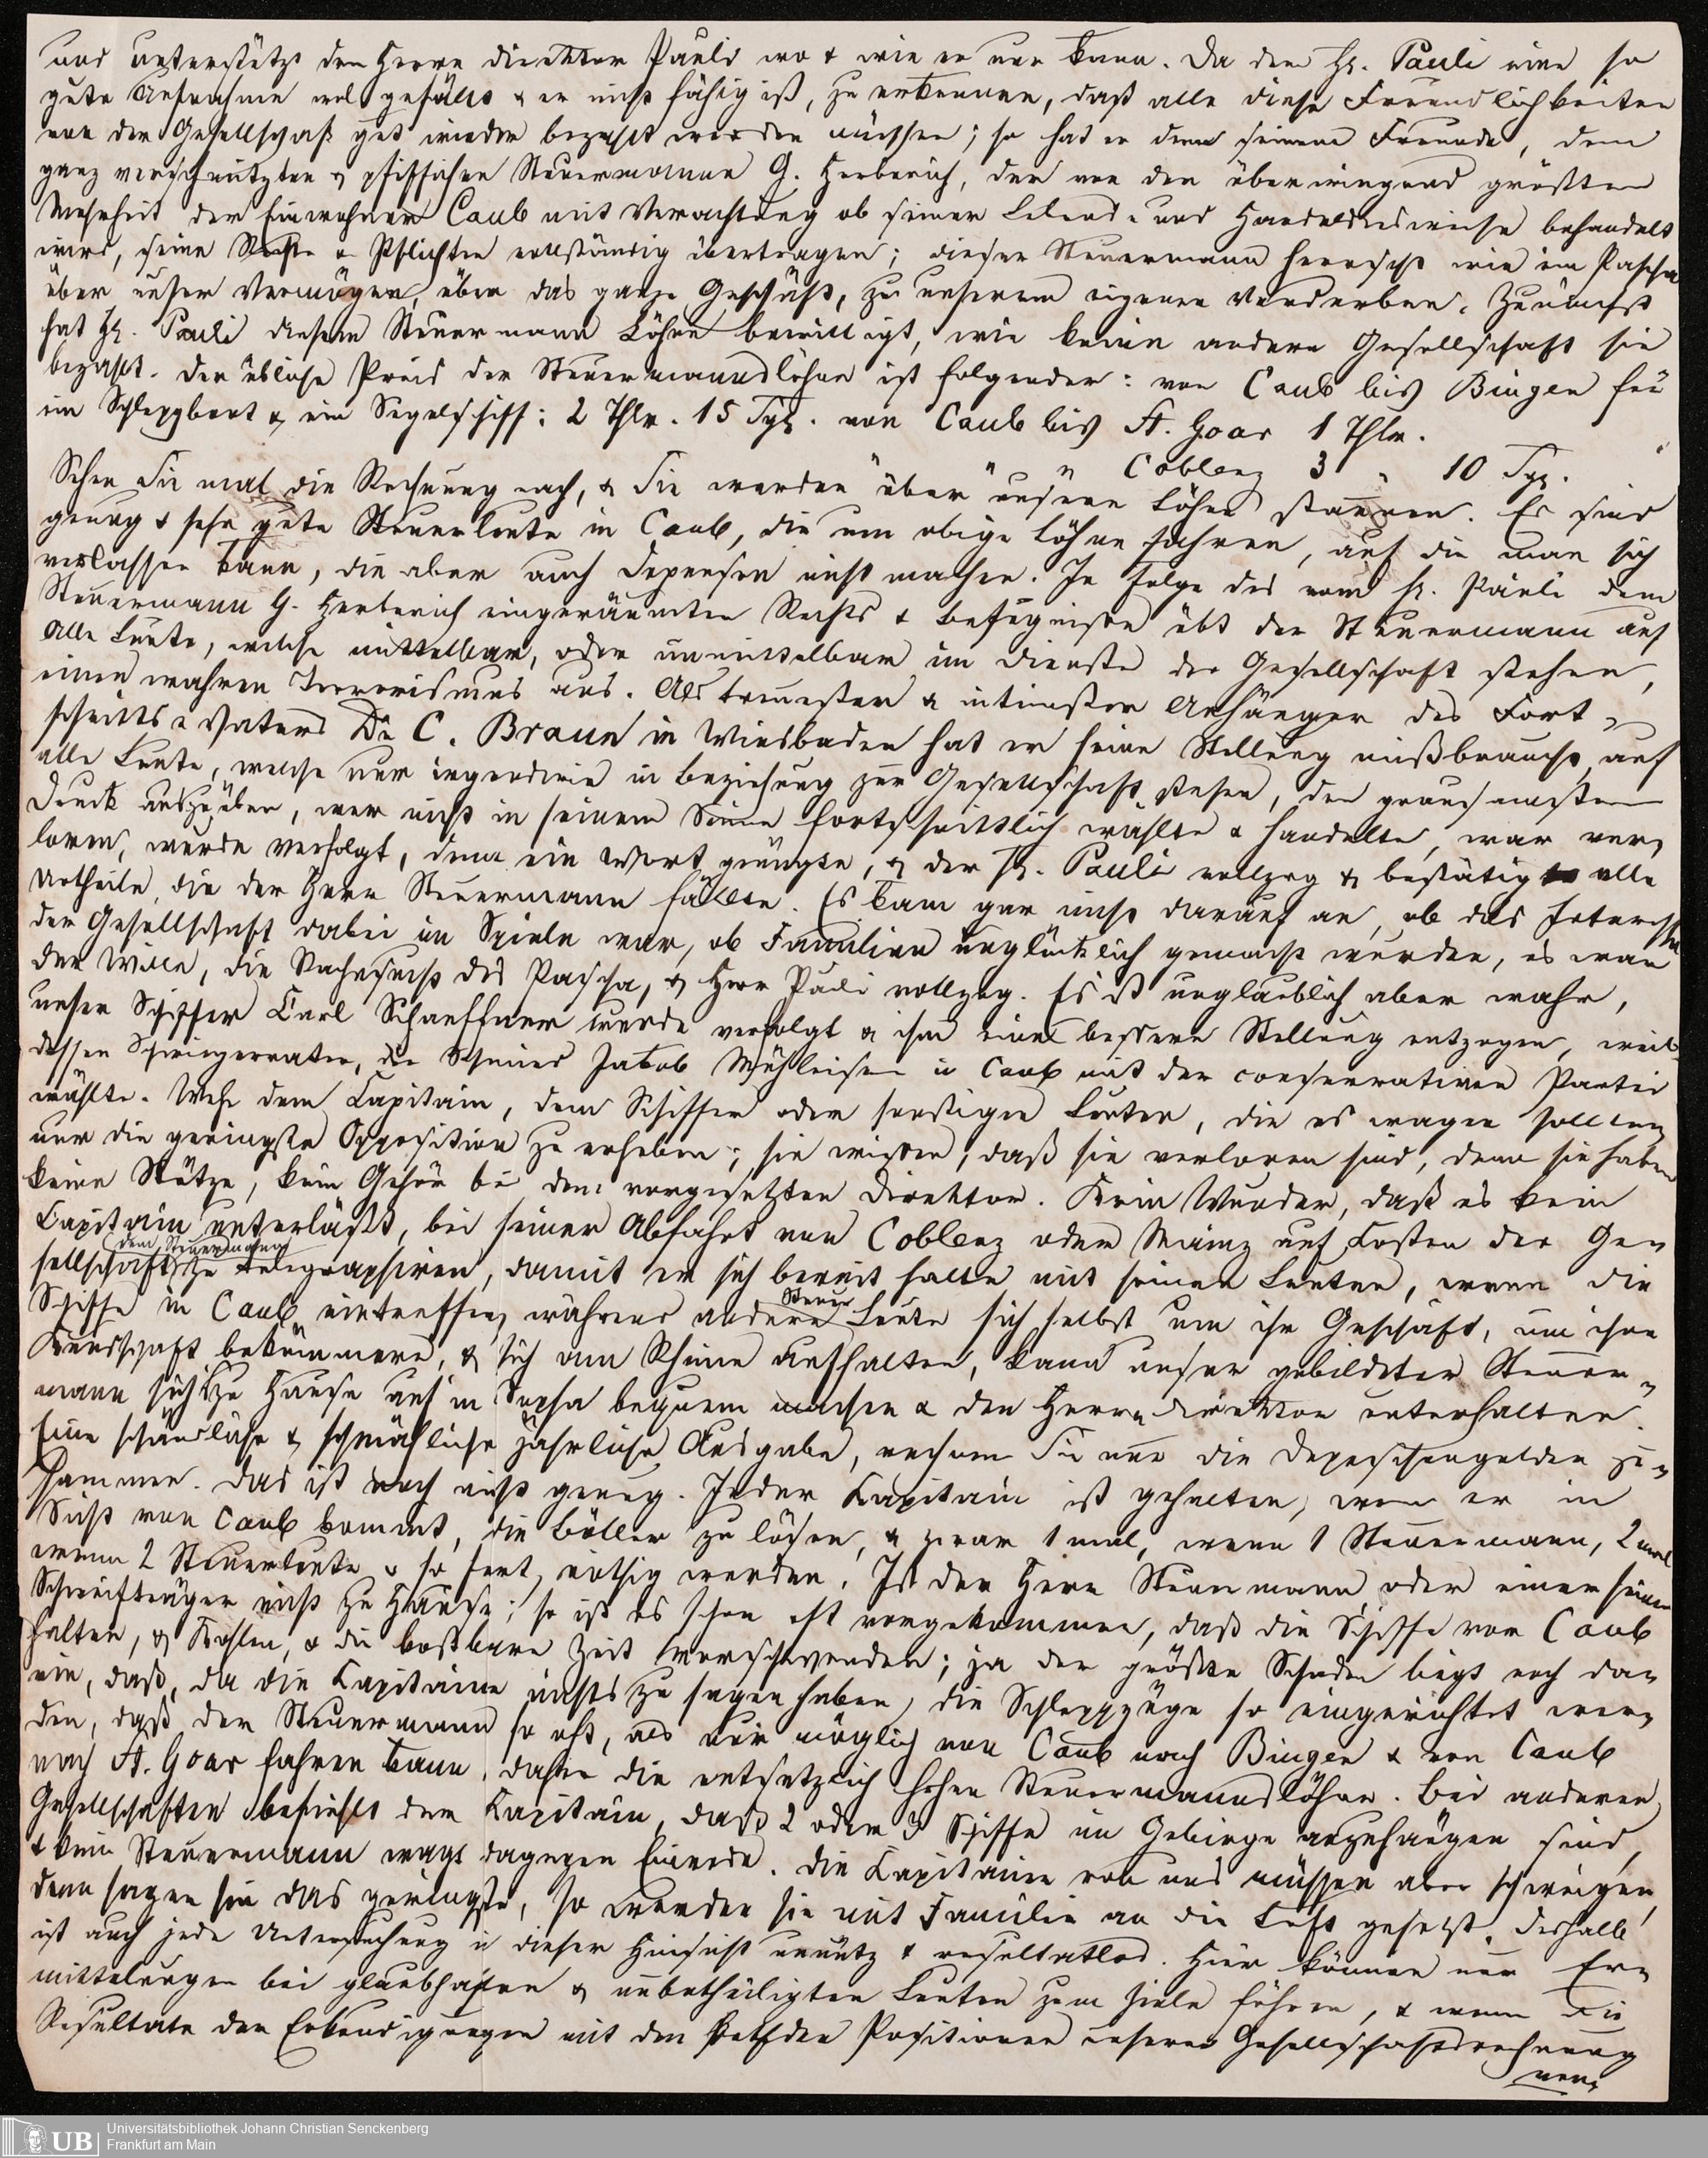 und unterstützt den Herrn Direktor Pauli wo & wie er nur kann. Da dem H. Pauli eine so
gute Aufnahme wol gefällt & er nicht fähig ist, zu erkennen, daß alle diese Freundlichkeiten
von der Gesellschaft gut wieder bezahlt werden müssen; so hat er denn seinem Freunde, dem
ganz verschmitzten & pfiffichen Steuermanne G. Herberich, der von der überwiegend größten
Mehrheit der Einwohner Caub mit Verachtung ob seiner Lebens- und Handelsweise behandelt
wird, seine Rechte & Pflichten vollständig übertragen; dieser Steuermann herrscht wie ein Pascha
über unser Vermögen, über das ganze Geschäft, zu unserem eigenen Verderben. Zunächst
hat H. Pauli diesem Steuermann Löhne bewilligt, wie keine andere Gesellschaft sie
bezahlt. Der übliche Preis der Steuermannslöhne ist folgender: von Caub bis Bingen für
ein Schleppboot & ein Segelschiff: 2 Thlr. 15 Sgr. von Caub bis St. Goar 1 Thlr.
" " Coblenz 3 " 10 Sgr.
Sehen Sie mal die Rechnung nach, & Sie werden über unsere Löhne staunen. Es sind
genug & sehr gute Steuerleute in Caub, die um obige Löhne fahren, auf die man sich
verlassen kann, die aber auch Depensen nicht machen. In Folge des vom H. Pauli dem
Steuermann G. Herberich eingeräumten Rechts & Befugnisse übt der Steuermann auf
alle Leute, welche mittelbar, oder unmittelbar im Dienste der Gesellschaft stehen,
einen wahren Terrorismus aus. Als treuester & intimster Anhänger des Fort-
schritts-Vaters Dr C. Braun in Wiesbaden hat er seine Stellung mißbraucht, auf
alle Leute, welche nur irgendwie in Beziehung zur Gesellschaft stehen, den grausamsten
Druck auszuüben, wer nicht in seinem Sinne fortschrittlich wählte & handelte, war ver-
loren, wurde verfolgt, denn ein Wort genügte, & der H. Pauli vollzog & bestätigte alle
Urtheile, die der Herr Steuermann fällte. Es kam gar nicht darauf an, ob das Interesse
der Gesellschaft dabei im Spiele war, ob Familien unglücklich gemacht wurden, es war
der Wille, die Rachsucht des Pascha, & Herr Pauli vollzog. Es ist unglaublich aber wahr,
unser Schiffer Carl Schaeffner wurde verfolgt & ihm eine bessere Stellung entzogen, weil
dessen Schwiegervater, der Schmied Jakob Mühleisen in Caub mit der conservativen Partei
wählte. Wehe dem Capitain, dem Schiffer oder sonstigen Leuten, die es wagen sollten
nur die geringste Opposition zu erheben; sie wissen, daß sie verloren sind, denn sie haben
keine Stütze, kein Gehör bei dem vorgesetzten Direktor. Kein Wunder, daß es kein
Capitain unterläßt, bei seiner Abfahrt von Coblenz oder Mainz auf Kosten der Ge-
sellschaft dem Steuermann zu telegraphiren, damit er sich bereit halte mit seinen Leuten, wenn die
Schiffe in Caub eintreffen, während andere Steuer Leute sich selbst um ihr Geschäft, um ihre
Kundschaft bekümmern, & sich am Rheine aufhalten, kann unser gebildeter Steuer-
mann sich zu Hause auf'm Sopha bequem machen & den Herrn Direktor unterhalten.
Eine schändliche & schmähliche jährliche Ausgabe, rechnen Sie nur die Depeschengelder zu-
sammen. Das ist noch nicht genug. Jeder Kapitain ist gehalten, wenn er in
Sicht von Caub kommt, die Böller zu lösen, & zwar 1 mal, wenn 1 Steuermann, 2 mal
wenn 2 Steuerleute & so fort, nöthig werden. Ist der Herr Steuermann oder einer seiner
Schweifträger nicht zu Hause; so ist es schon oft vorgekommen, daß die Schiffe vor Caub
halten, & Kohlen, & die kostbare Zeit verschwenden; ja der größte Schaden liegt noch da-
rin, daß, da die Kapitaine nichts zu sagen haben, die Schleppzüge so eingerichtet wer-
den, daß der Steuermann so oft, als nur möglich von Caub nach Bingen & von Caub
nach St. Goar fahren kann, daher die entsetzlich hohen Steuermannslöhne. Bei anderen
Gesellschaften befiehlt der Kapitain, daß 2 oder 3 Schiffe im Gebirge anzuhängen sind,
& kein Steuermann wagt dagegen Einrede. Die Kapitaine von uns müssen aber schweigen,
denn sagen sie das geringste, so werden sie mit Familie an die Luft gesetzt. Deshalb
ist auch jede Untersuchung in dieser Hinsicht unnütz & resultatlos. Hier können nur Er-
mittelungen bei glaubhaften & unbetheiligten Leuten zum Ziele führen, & wenn die
Resultate der Erkundigungen mit den Positionen unserer Gesellschaftsrechnung
Universitätsbibliothek Johann Christian Senckenberg
Frankfurt am Main